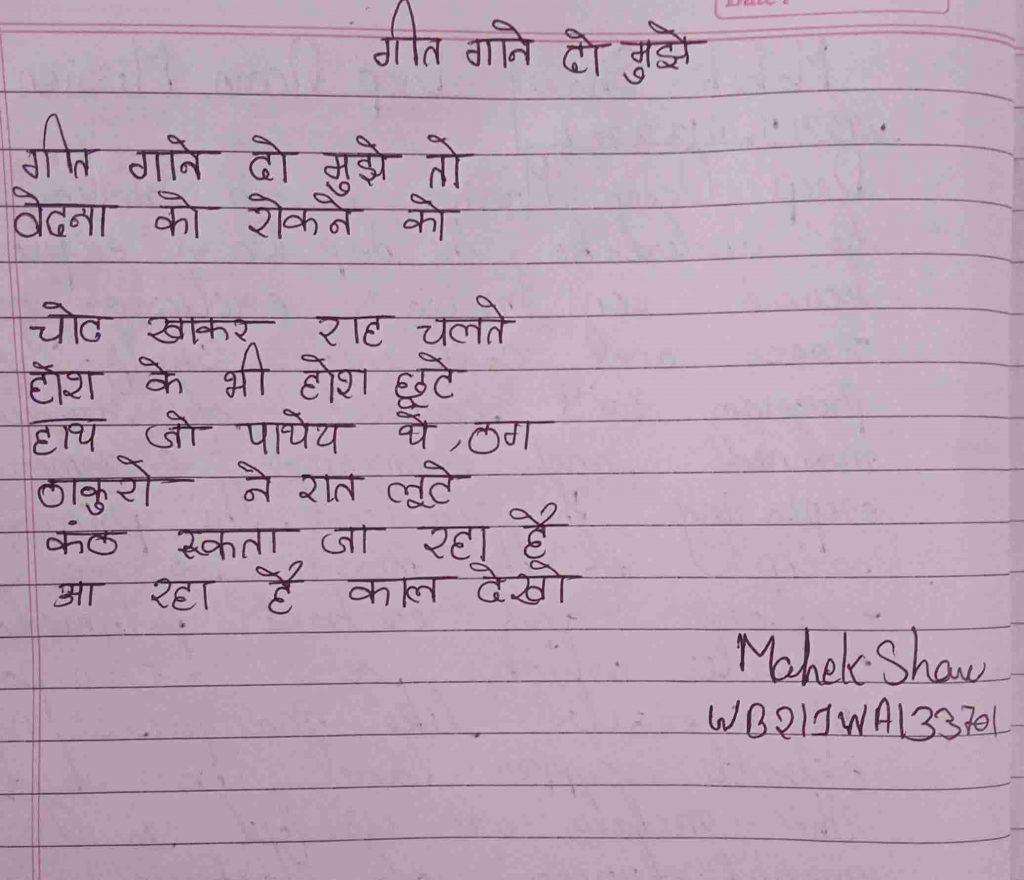 गीत गाने दो मुझे
गीत गाने दो मुझे तो
वेदना को रोकने को
चोट खाकर राह चलते
होश के भी होश छूटे
हाथ जो पाथेय थे, ठग
ठाकुरो ने रात लूटे
कंठ रूकता जा रहा है
आ रहा है काल देखो
Mahek Shaw